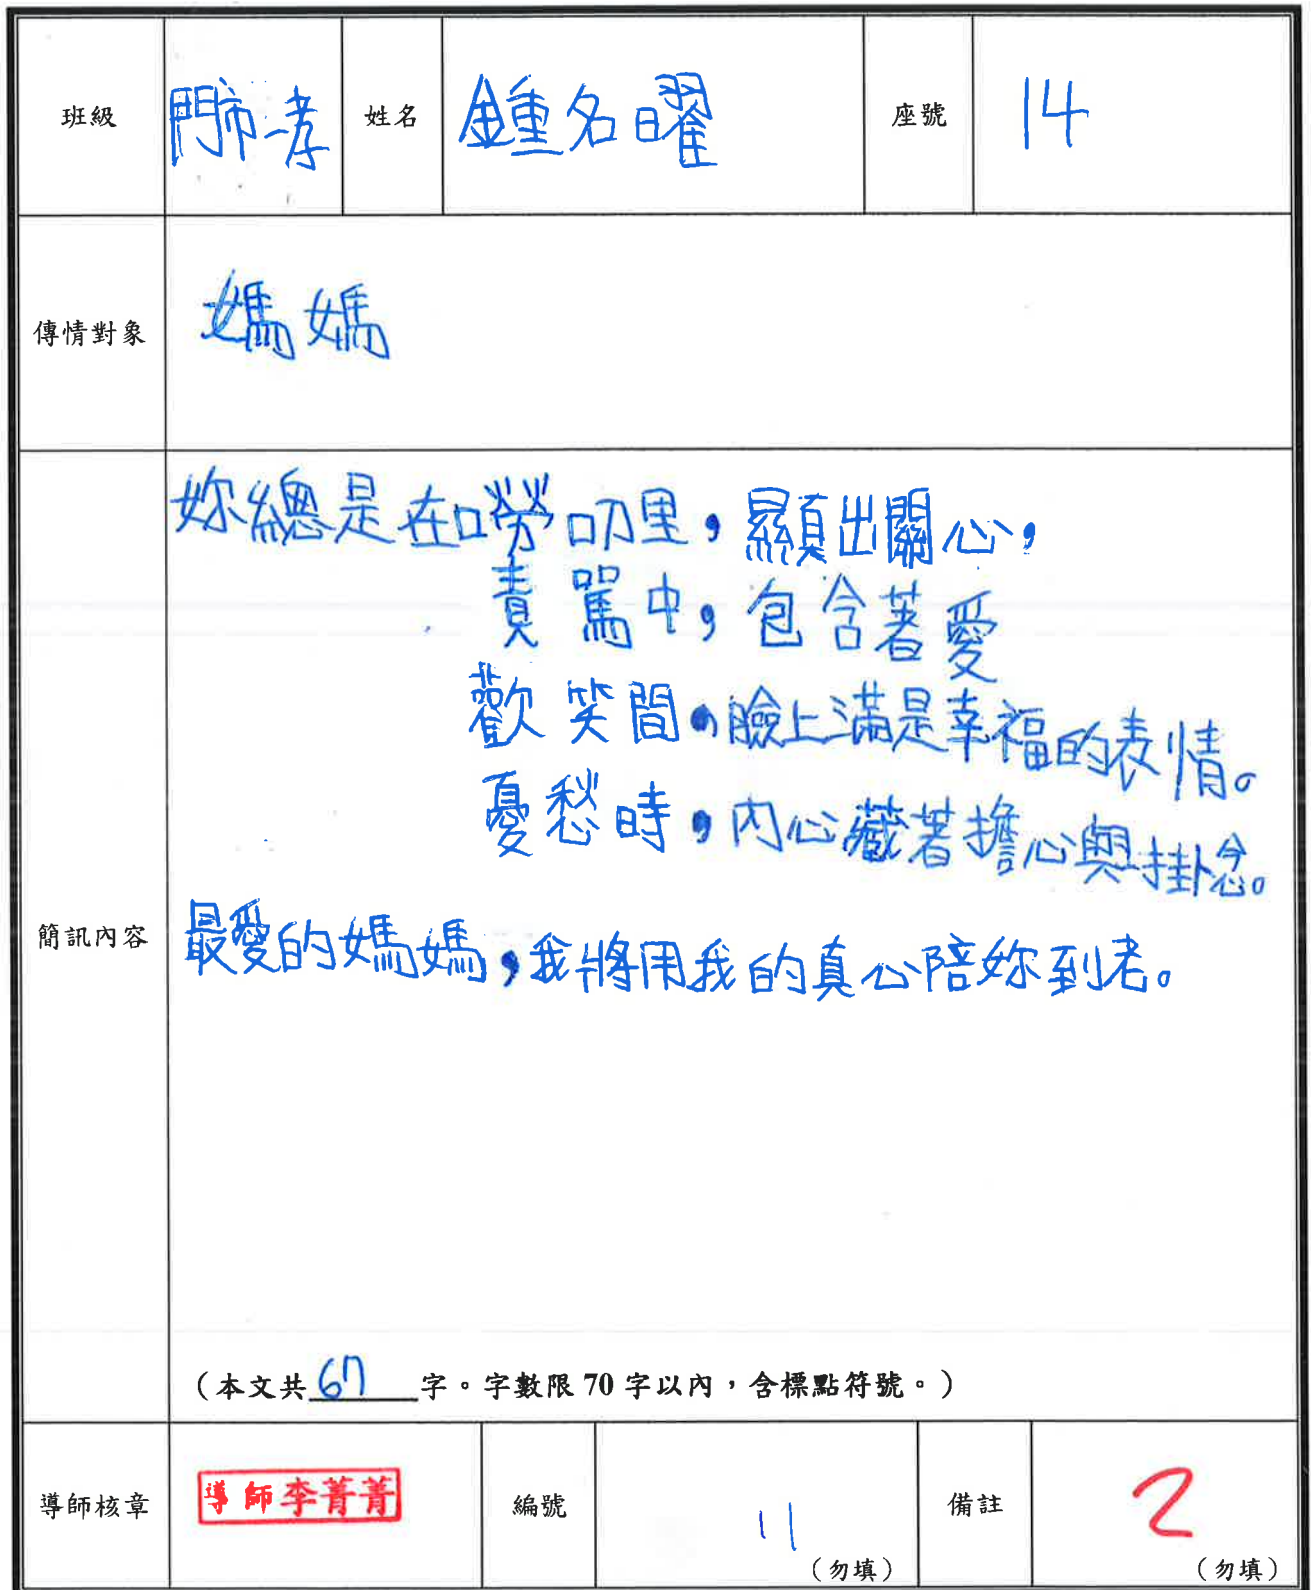 班級 門市一孝 姓名 鍾名曜 座號 14
傳情對象 媽媽
妳總是在嘮叨里，顯出關心，
責罵中，包含著愛
歡笑間，臉上滿是幸福的表情。
憂愁時，內心藏著擔心與掛念。
簡訊內容 最愛的媽媽，我將用我的真心陪妳到老。
（本文共67字。字數限 70 字以內，含標點符號。）
導師核章 導師李菁菁 編號 11 （勿填） 備註 2 （勿填）